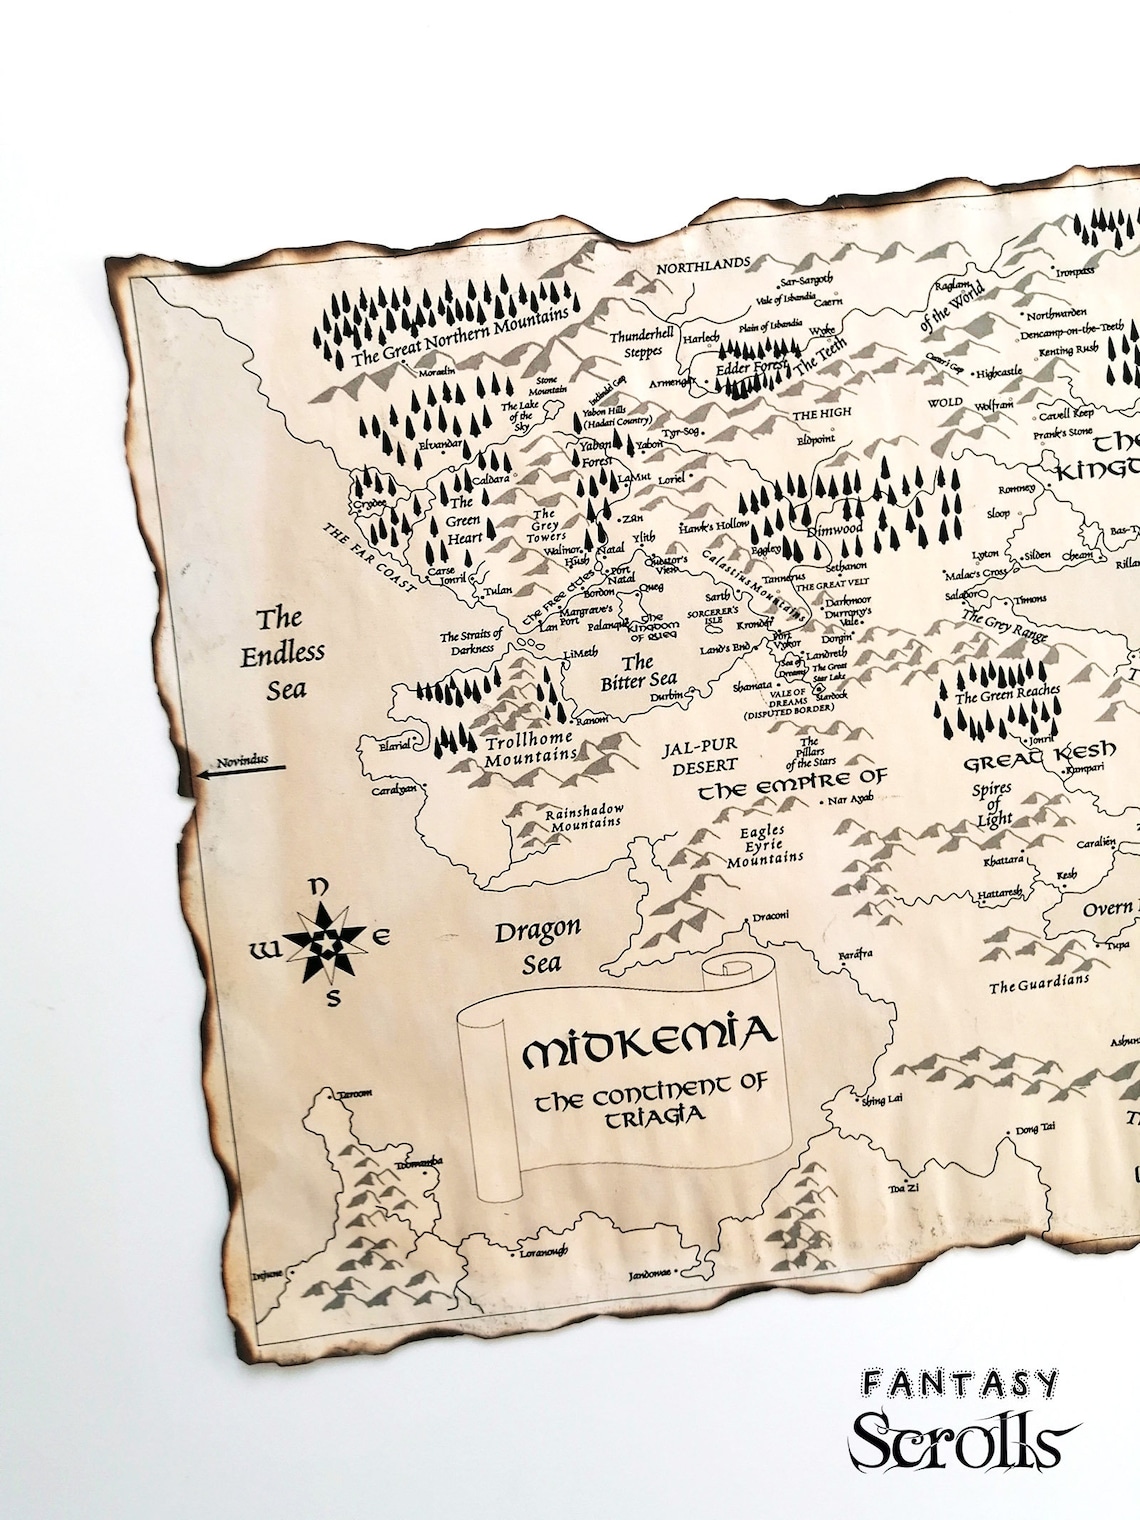 NORTHLANDS
Sar-Sargoth
Vale of Isbandia
Caern
Raglam
Ironpass
of the World
Northwarden
Dencamp-on-the-Teeth
Kenting Rush
The Great Northern Mountains
Thunderhell
Steppes
Harlech
Plain of Isbandia
Wyke
The Teeth
Edder Forest
Armengar
Highcastle
Moraelin
Stone
Mountain
The Lake
of the
Sky
Inclindel Gap
Yabon Hills
(Hadati Country)
Tyr-Sog
THE HIGH
WOLD
Wolfram
Cavell Keep
Prank's Stone
Eldpoint
Elvandar
Yabon
Forest
Yabon
Caldara
LaMut
Loriel
Romney
Crydee
The
Green
Heart
The
Grey
Towers
Zūn
Hawk's Hollow
Dimwood
Sloop
THE FAR COAST
Walinor
Hush
Natal
Ylith
Questor's
View
Eggley
Calastius Mountains
Sethanon
Tannerus
THE GREAT VELT
Lyton
Silden
Cheam
Malac's Cross
Carse
Jonril
Tulan
THE FREE CITIES
Port
Natal
Bordon
Queg
Margrave's
Port
Lan
Palanque
THE
KINGDOM
OF QUEG
Sarth
SORCERER'S
ISLE
Krondor
Darkmoor
Durrony's
Vale
Dorgin
Salador
Timons
The Grey Range
The
Endless
Sea
The Straits of
Darkness
LiMeth
The
Bitter Sea
Land's End
Port
Vykor
Landreth
Sea of
Dreams
The Great
Star Lake
Stardock
Shamata
VALE OF
DREAMS
(DISPUTED BORDER)
Durbin
Ranom
The Green Reaches
Jonril
Elarial
Trollhome
Mountains
JAL-PUR
DESERT
The
Pillars
of the Stars
THE EMPIRE OF
GREAT KESH
Kampari
Novindus
Caralyan
Rainshadow
Mountains
Nar Ayab
Spires
of
Light
Eagles
Eyrie
Mountains
Khattara
Caralién
Kesh
Hattaresh
Overn
Tupa
N
W
E
S
Dragon
Sea
Draconi
Faráfra
The Guardians
MIDKEMIA
THE CONTINENT OF
TRIAGIA
Taroom
Toowomba
Shing Lai
Dong Tai
Toa Zi
Injune
Loranough
Jandowae
FANTASY
Scrolls